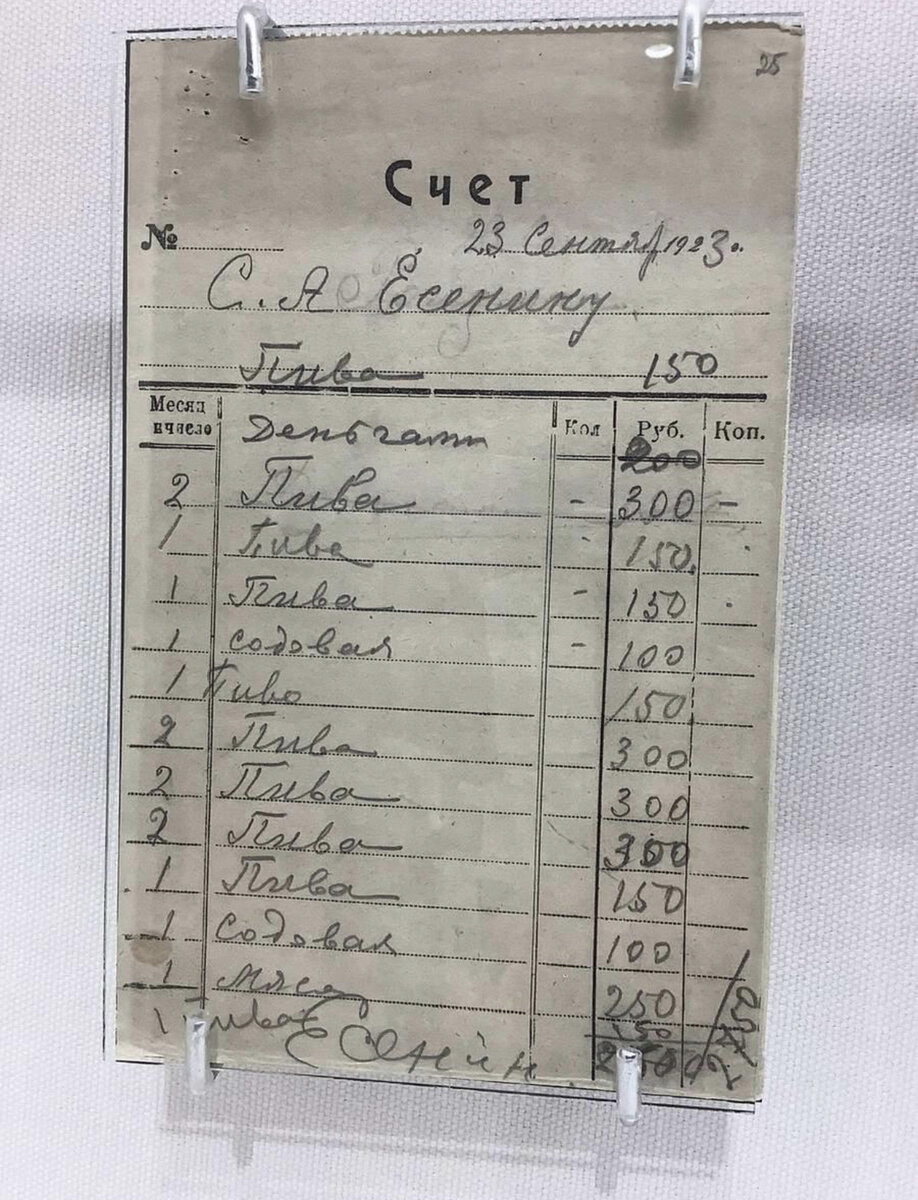 25
Счет
№ 23 Сентяб 1923.
С. А Есенину
Пива 150
Месяц и число Деньгами Кол Руб. Коп.
200
2 Пива - 300 -
1 Пива - 150.
1 Пива - 150
1 содовая - 100
1 Пиво 150
2 Пива 300
2 Пива 300
2 Пива 300
1 Пива 150
1 Содовая 100
1 мяса 250
1 Пива 150
Есенин